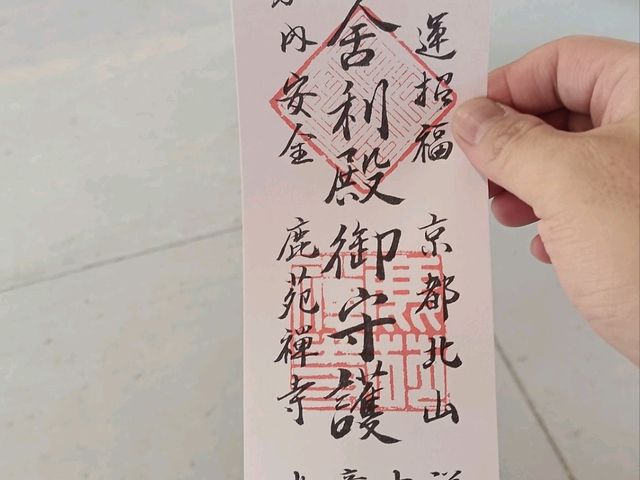 運招福
京都北山
舎利殿御守護
内安全
鹿苑禪寺